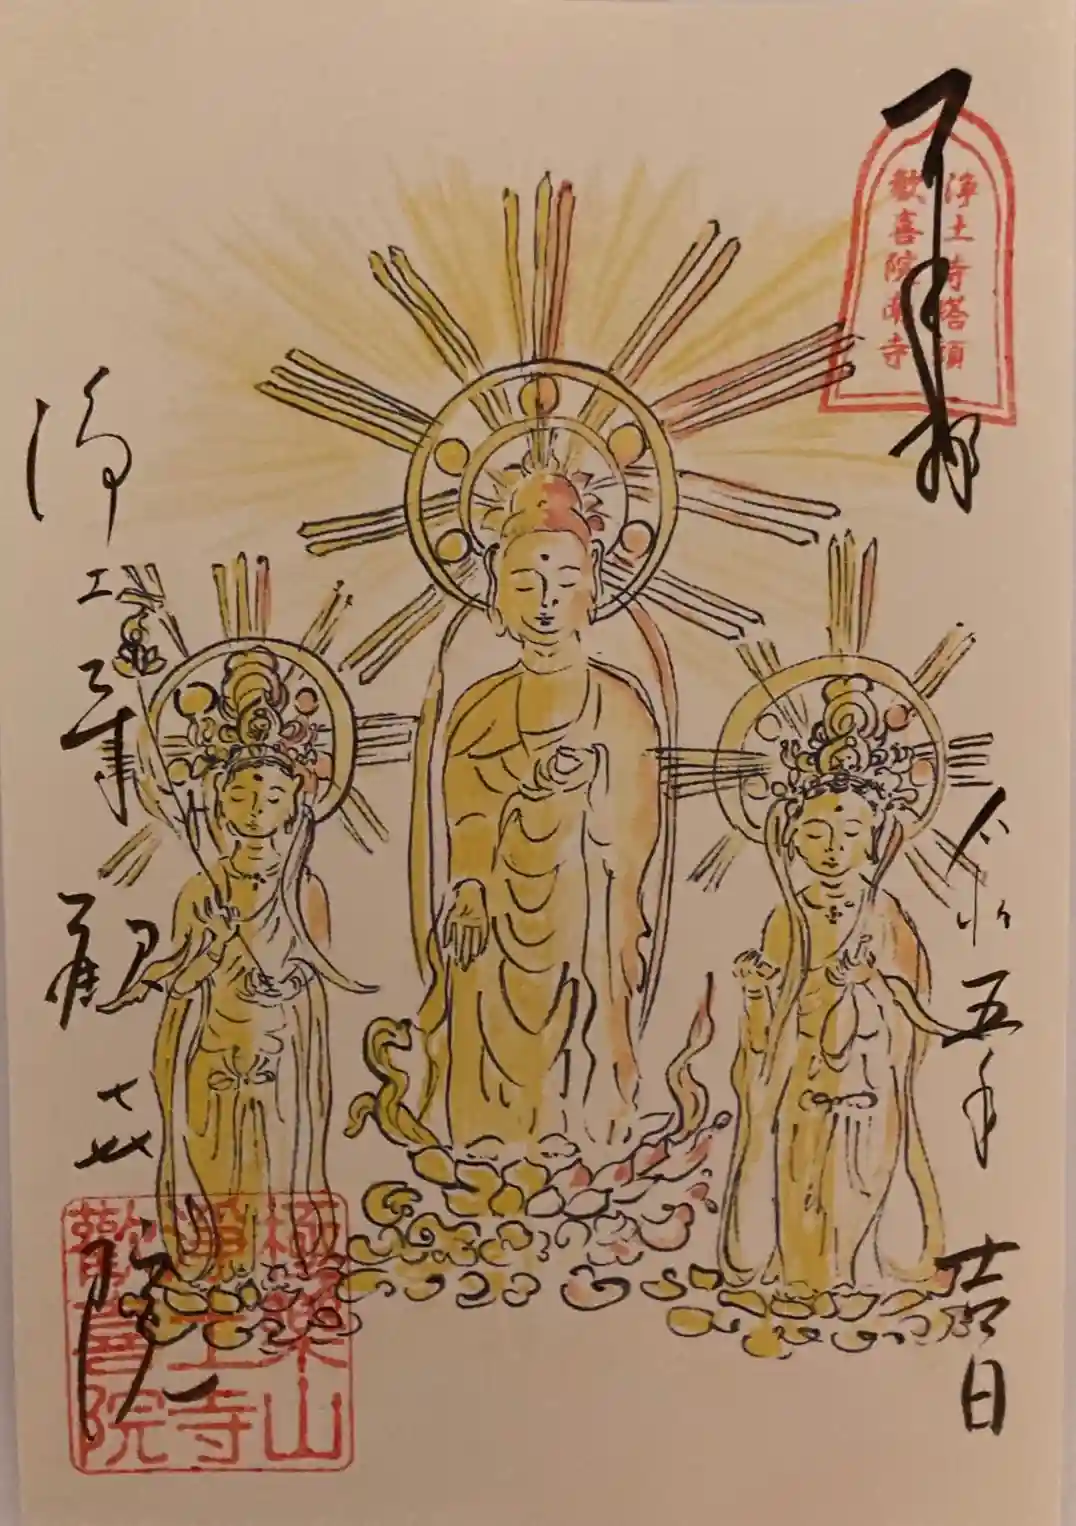 奉拝
浄土寺塔頭
歓喜院
令和五年 吉日
浄土寺 歓喜院
極樂山
浄土寺
歡喜院